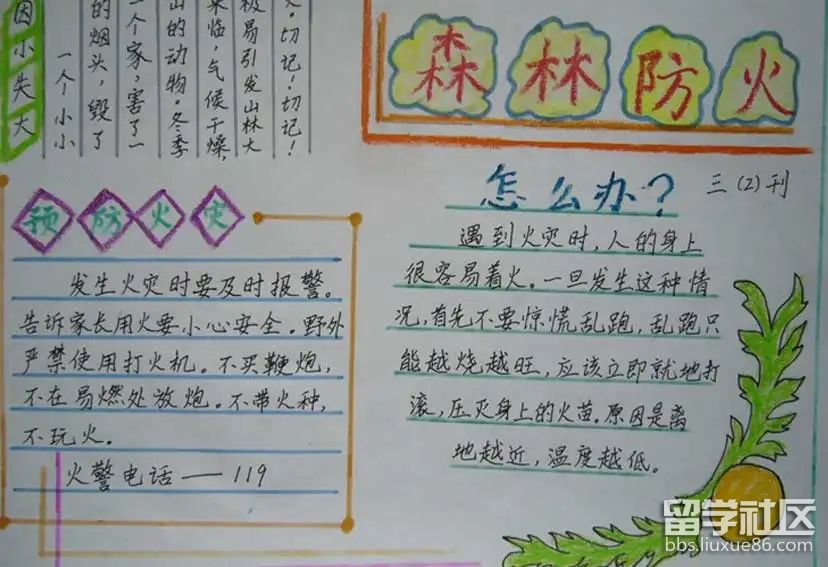 因小失大
一个小小
的烟头，毁了
一个家，害了一
山的动物。冬季
来临，气候干燥，
极易引发山林大
。切记！切记！
森林防火
三（2）刊
预防火灾
发生火灾时要及时报警。
告诉家长用火要小心安全。野外
严禁使用打火机。不买鞭炮，
不在易燃处放炮。不带火种，
不玩火。
火警电话——119
怎么办？
遇到火灾时，人的身上
很容易着火。一旦发生这种情
况，首先不要惊慌乱跑，乱跑只
能越烧越旺，应该立即就地打
滚，压灭身上的火苗。原因是离
地越近，温度越低。
留学社区
bbs.liuxue86.com